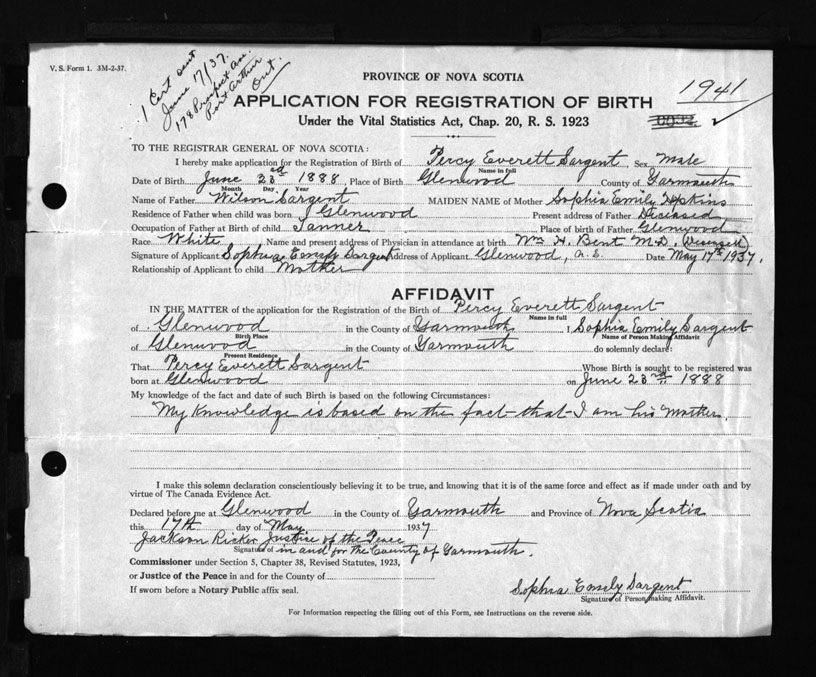 V. S. Form 1. 3M-2-37.
1 Cert sent
June 17/37.
178 Prospect Av.
Port Arthur
Ont.
PROVINCE OF NOVA SCOTIA
1941
APPLICATION FOR REGISTRATION OF BIRTH
Under the Vital Statistics Act, Chap. 20, R. S. 1923
TO THE REGISTRAR GENERAL OF NOVA SCOTIA:
I hereby make application for the Registration of Birth of Percy Everett Sargent, Sex Male
Name in full
Date of Birth June 23rd 1888, Place of Birth Glenwood County of Yarmouth
Month Day, Year
Name of Father Wilson Sargent MAIDEN NAME of Mother Sophia Emily Hopkins
Residence of Father when child was born Glenwood Present address of Father Diseased
Occupation of Father at Birth of child Tanner Place of birth of Father Glenwood
Race White Name and present address of Physician in attendance at birth Wm H. Bent M.D. (Diseased)
Signature of Applicant Sophia Emely Sargent Address of Applicant Glenwood, N.S. Date May 17th 1937.
Relationship of Applicant to child Mother
AFFIDAVIT
IN THE MATTER of the application for the Registration of the Birth of Percy Everett Sargent
Name in full
of Glenwood in the County of Yarmouth I, Sophia Emily Sargent
Birth Place Name of Person Making Affidavit
of Glenwood in the County of Yarmouth do solemnly declare:
Present Residence
That Percy Everett Sargent Whose Birth is sought to be registered was
born at Glenwood on June 23rd 1888
My knowledge of the fact and date of such Birth is based on the following Circumstances:
My Knowledge is based on the fact that I am his Mother.
I make this solemn declaration conscientiously believing it to be true, and knowing that it is of the same force and effect as if made under oath and by
virtue of The Canada Evidence Act.
Declared before me at Glenwood in the County of Yarmouth and Province of Nova Scotia
this 17th day of May 1937
Jackson Ricker Justice of the Peace
Signature of in and for The County of Yarmouth.
Commissioner under Section 5, Chapter 38, Revised Statutes, 1923,
or Justice of the Peace in and for the County of
If sworn before a Notary Public affix seal.
Sophia Emely Sargent
Signature of Person making Affidavit.
For Information respecting the filling out of this Form, see Instructions on the reverse side.